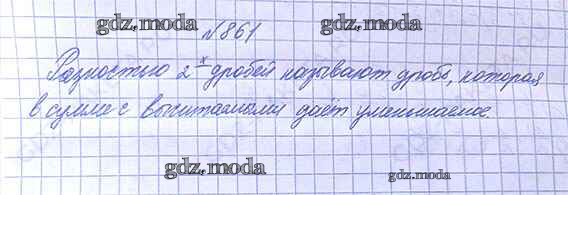 gdz.moda №861 gdz.moda
Разностью 2-х дробей называют дробь, которая
в сумме с вычитаемыми даёт уменьшаемое.
gdz.moda gdz.moda